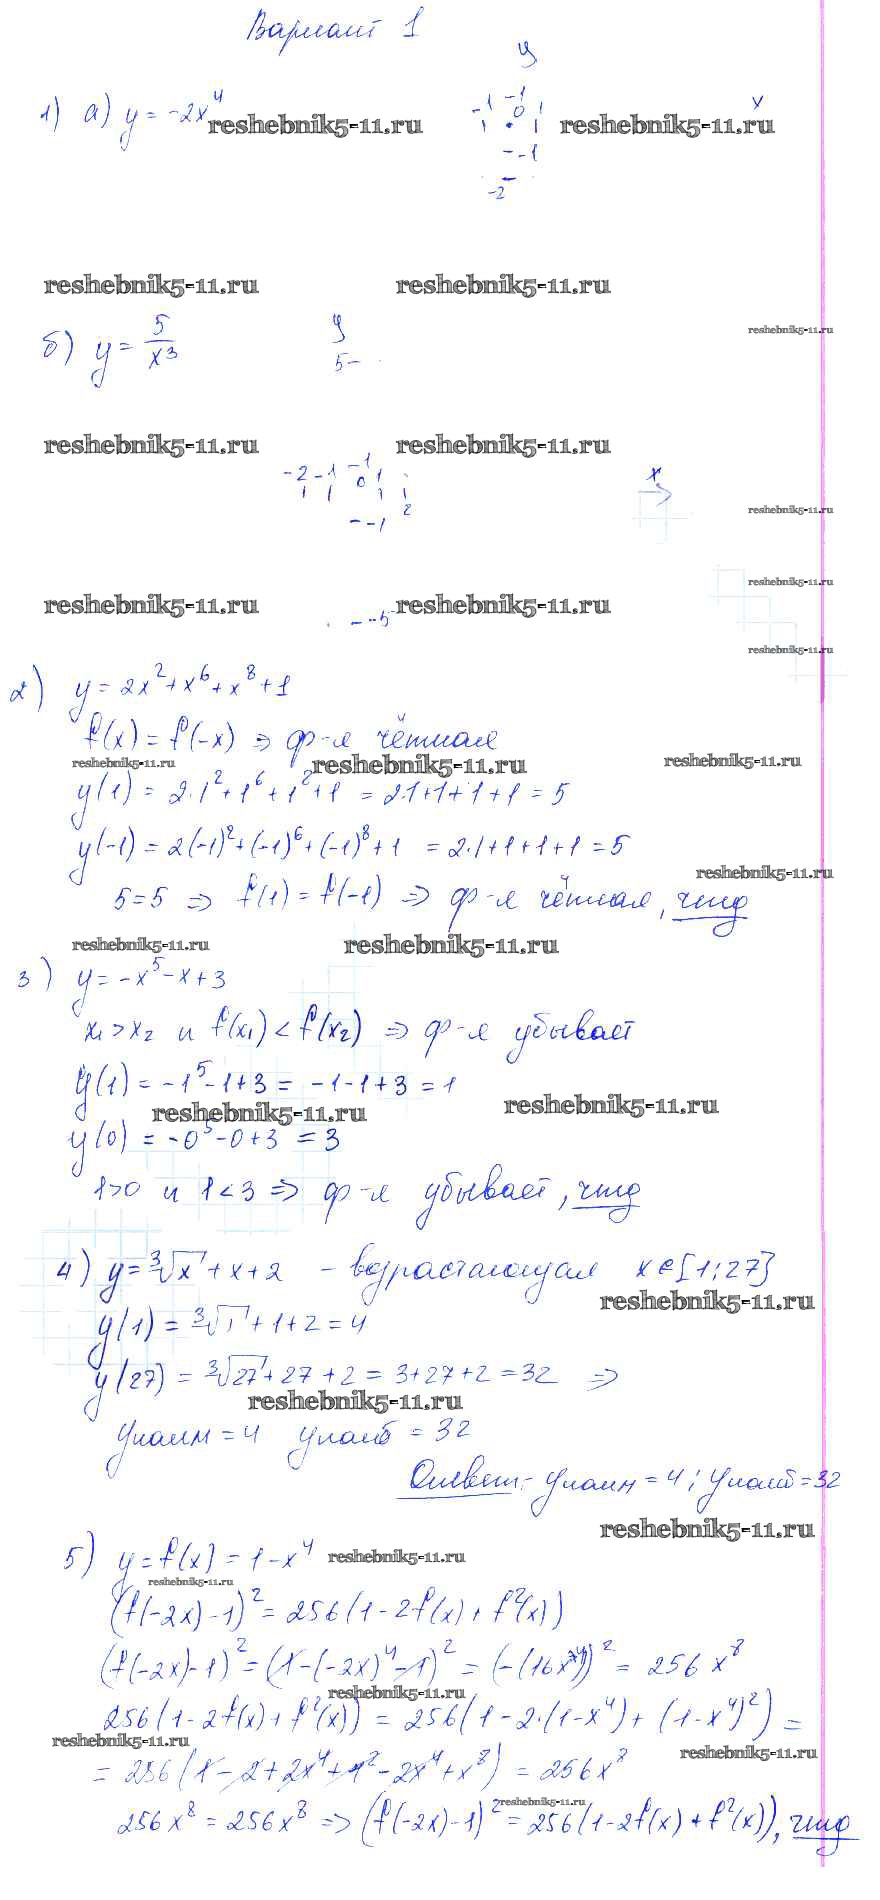 Вариант 1
y
1) а) y = -2x⁴
-1 -1 0 1 x
-1
-2
reshebnik5-11.ru reshebnik5-11.ru
reshebnik5-11.ru reshebnik5-11.ru
б) y = 5/x³ y
5
reshebnik5-11.ru
reshebnik5-11.ru reshebnik5-11.ru
-2 -1 -1 0 1 x
2
-1
reshebnik5-11.ru
reshebnik5-11.ru
reshebnik5-11.ru reshebnik5-11.ru
-5
reshebnik5-11.ru
2) y = 2x² + x⁶ + x⁸ + 1
f(x) = f(-x) ⇒ ф-я чётная
reshebnik5-11.ru reshebnik5-11.ru reshebnik5-11.ru
y(1) = 2·1² + 1⁶ + 1⁸ + 1 = 2·1+1+1+1 = 5
y(-1) = 2(-1)² + (-1)⁶ + (-1)⁸ + 1 = 2·1+1+1+1 = 5
reshebnik5-11.ru
5=5 ⇒ f(1) = f(-1) ⇒ ф-я чётная, чтд
reshebnik5-11.ru reshebnik5-11.ru
3) y = -x⁵ - x + 3
x₁ > x₂ и f(x₁) < f(x₂) ⇒ ф-я убывает
y(1) = -1⁵ - 1 + 3 = -1 - 1 + 3 = 1
reshebnik5-11.ru reshebnik5-11.ru
y(0) = -0⁵ - 0 + 3 = 3
1>0 и 1<3 ⇒ ф-я убывает, чтд
4) y = ³√x + x + 2 - возрастающая x∈[1;27]
reshebnik5-11.ru
y(1) = ³√1 + 1 + 2 = 4
y(27) = ³√27 + 27 + 2 = 3+27+2 = 32 ⇒
reshebnik5-11.ru
yнаим = 4 yнаиб = 32
Ответ: yнаим = 4; yнаиб = 32
reshebnik5-11.ru
5) y = f(x) = 1 - x⁴ reshebnik5-11.ru
reshebnik5-11.ru
(f(-2x) - 1)² = 256(1 - 2f(x) + f²(x))
(f(-2x) - 1)² = (1 - (-2x)⁴ - 1)² = (-(16x⁴))² = 256x⁸
reshebnik5-11.ru
256(1 - 2f(x) + f²(x)) = 256(1 - 2·(1 - x⁴) + (1 - x⁴)²) =
reshebnik5-11.ru reshebnik5-11.ru
= 256(1 - 2 + 2x⁴ + 1² - 2x⁴ + x⁸) = 256x⁸
reshebnik5-11.ru
256x⁸ = 256x⁸ ⇒ (f(-2x) - 1)² = 256(1 - 2f(x) + f²(x)), чтд